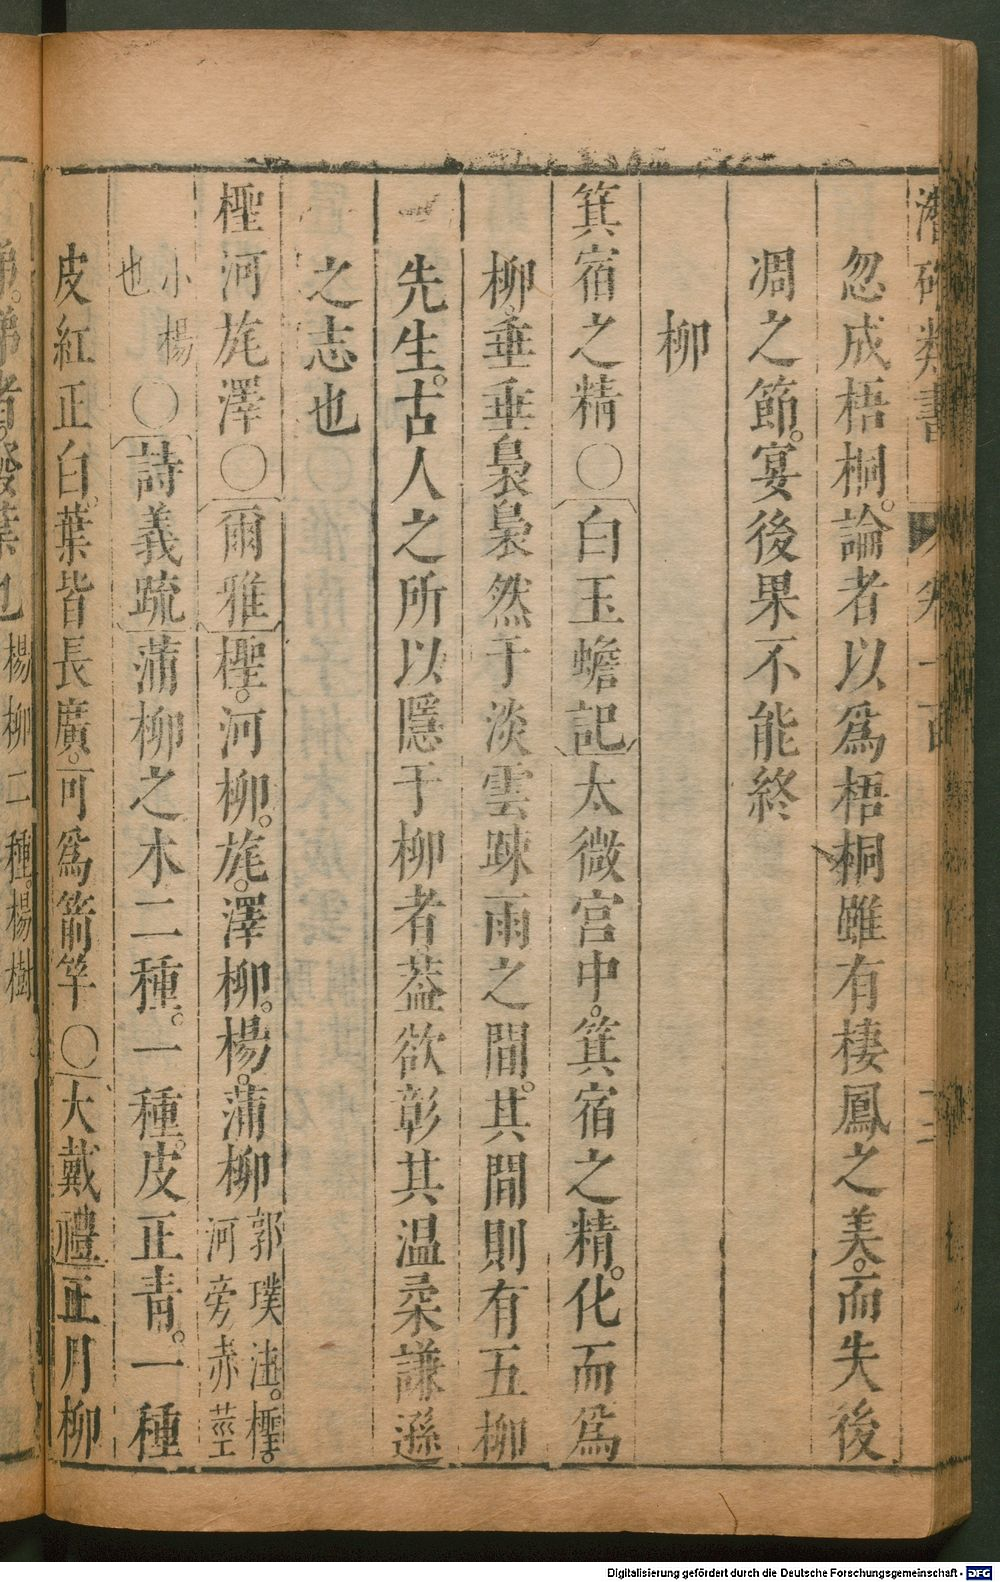 潛確類書 卷一百 三
忽成梧桐。論者以爲梧桐雖有棲鳳之美。而失後
凋之節。宴後果不能終
柳
箕宿之精〇白玉蟾記太微宮中。箕宿之精。化而爲
柳。垂垂裊裊然于淡雲疎雨之間。其間則有五柳
先生。古人之所以隱于柳者葢欲彰其温柔謙遜
之志也
檉河旄澤〇爾雅檉。河柳。旄。澤柳。楊。蒲柳郭璞註。檉。河旁赤莖
小楊也〇詩義疏蒲柳之木二種。一種。皮正青。一種
皮紅正白。葉皆長廣。可爲箭竿〇大戴禮正月柳
稊。稊者。發葉也楊柳二種。楊樹
Digitalisierung gefördert durch die Deutsche Forschungsgemeinschaft - DFG